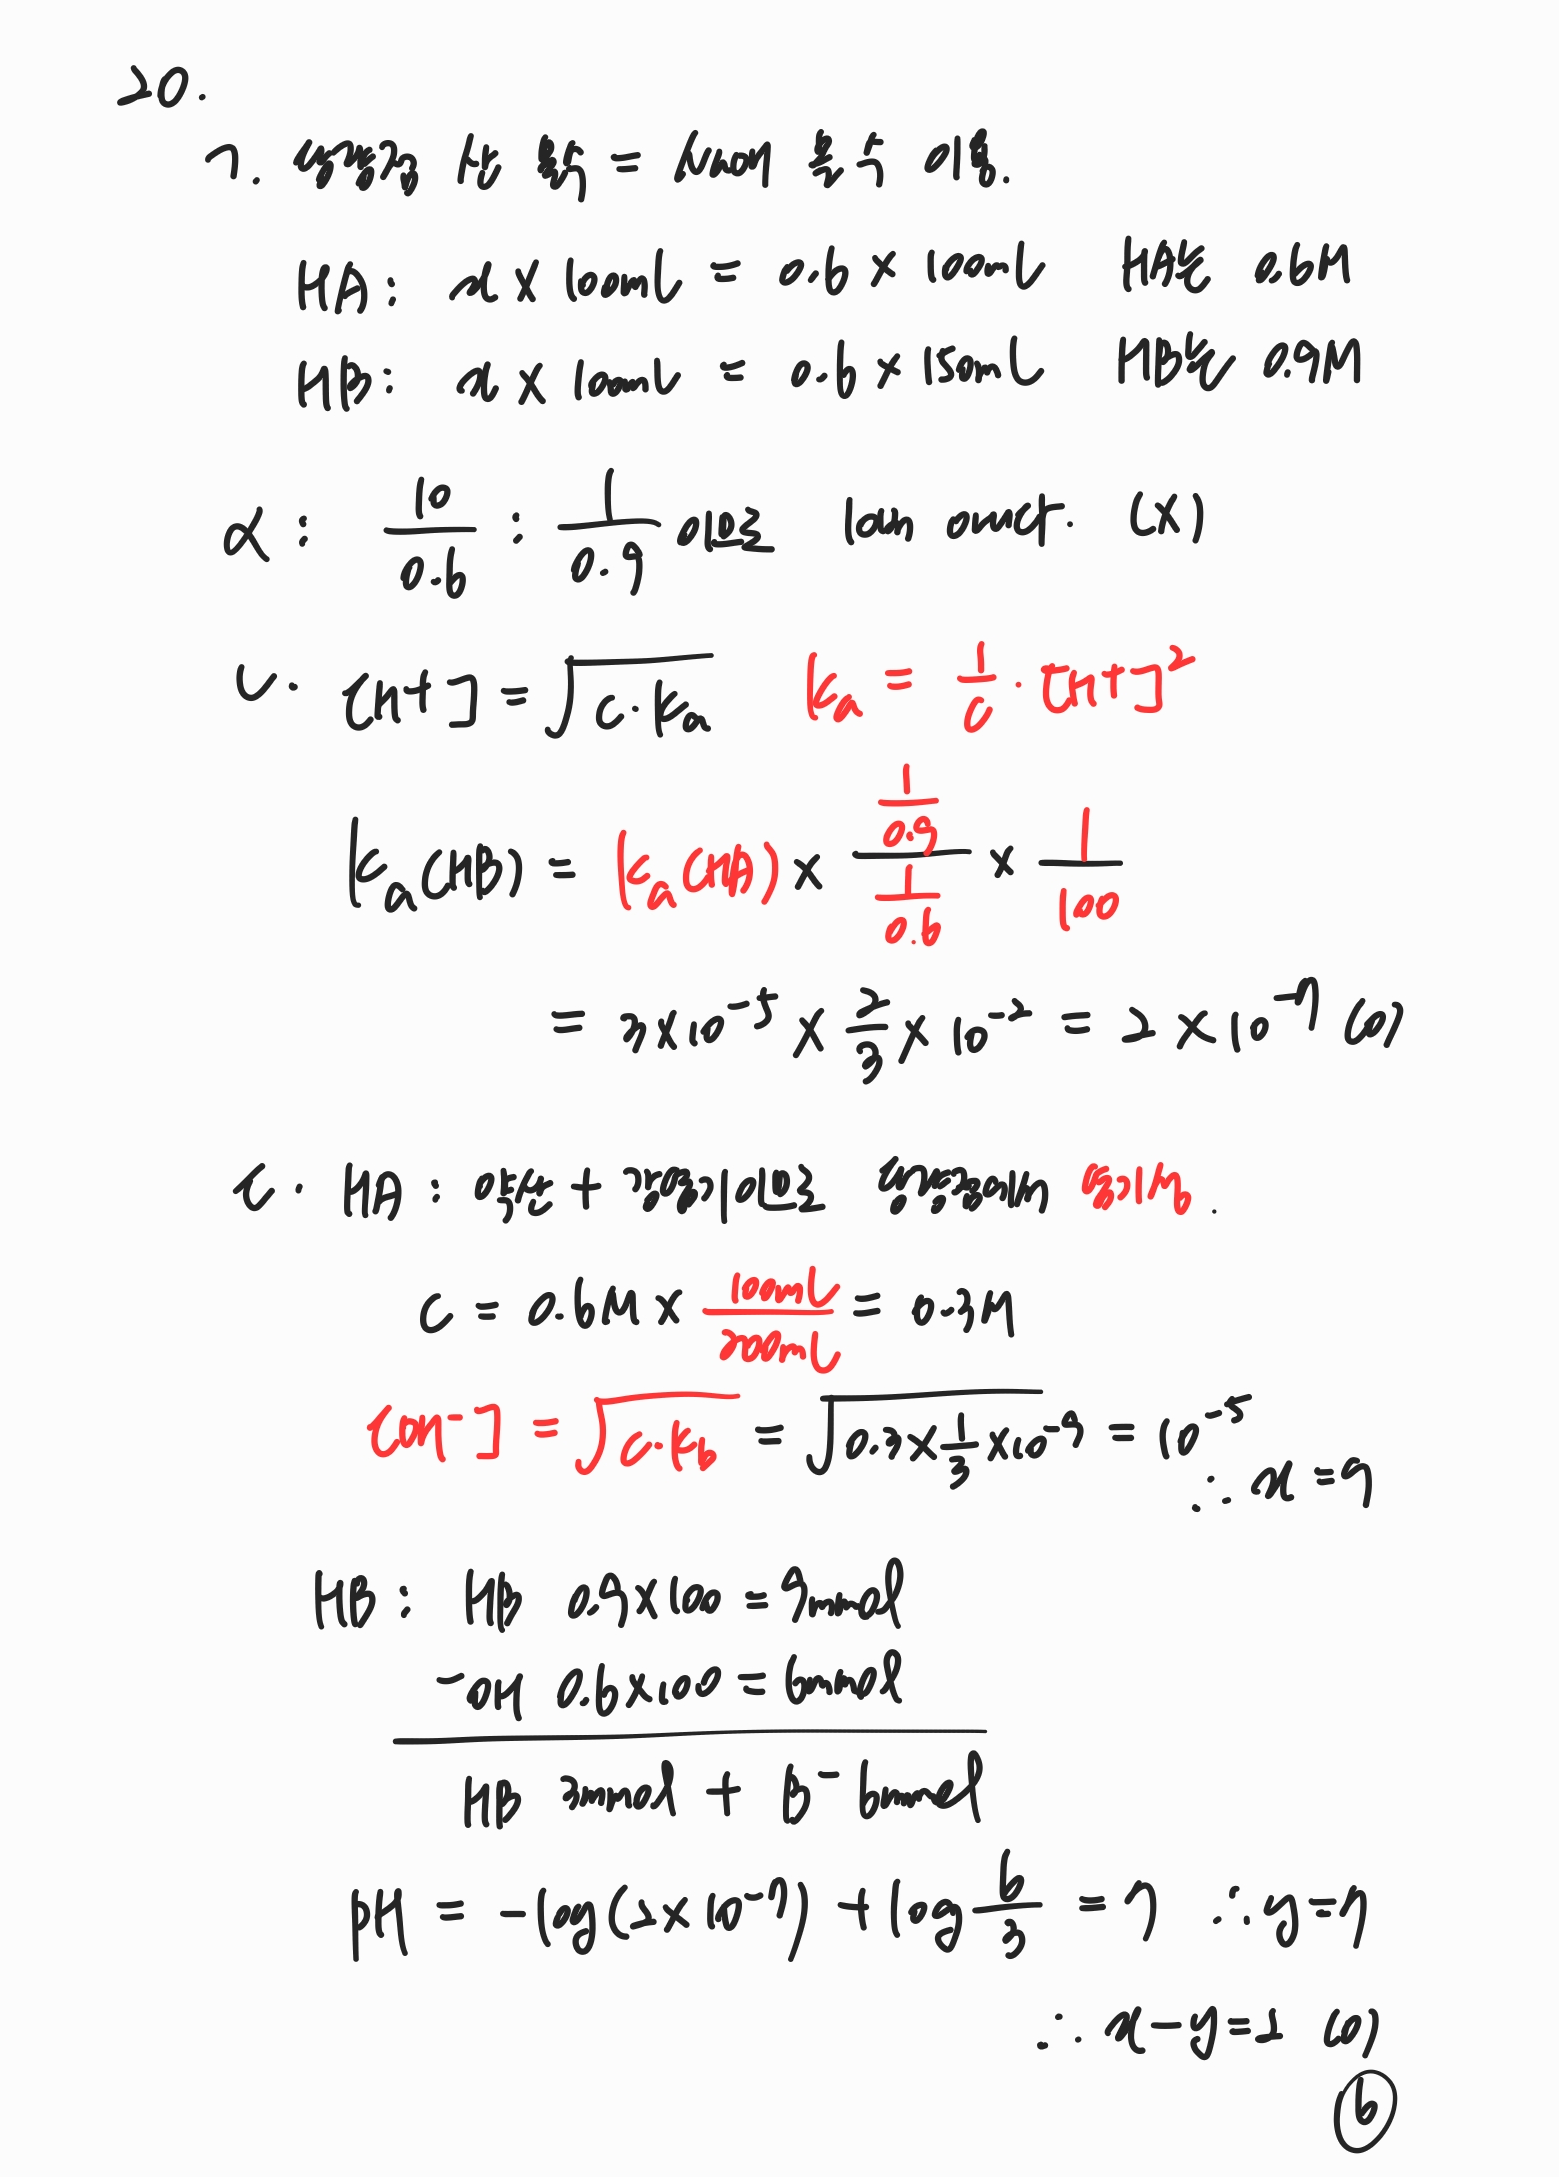 20.
ㄱ. 당량점 산 몰수 = NaOH 몰수 이용.
HA : x × 100mL = 0.6 × 100mL HA는 0.6M
HB : x × 100mL = 0.6 × 150mL HB는 0.9M
α : 10/0.6 : 1/0.9 이므로 10배 아니다. (X)
ㄴ. [H+] = √(C·Ka) Ka = 1/C · [H+]²
Ka(HB) = Ka(HA) × (1/0.9)/(1/0.6) × 1/100
= 3×10⁻⁵ × 2/3 × 10⁻² = 2 × 10⁻⁷ (O)
ㄷ. HA : 약산 + 강염기이므로 당량점에서 염기성.
C = 0.6M × 100mL/200mL = 0.3M
[OH⁻] = √(C·Kb) = √(0.3 × 1/3 × 10⁻⁹) = 10⁻⁵
∴ x = 9
HB : HB 0.9×100 = 9mmol
⁻OH 0.6×100 = 6mmol
HB 3mmol + B⁻ 6mmol
pH = -log(2×10⁻⁷) + log 6/3 = 7 ∴ y=7
∴ x-y=2 (O)
⑥